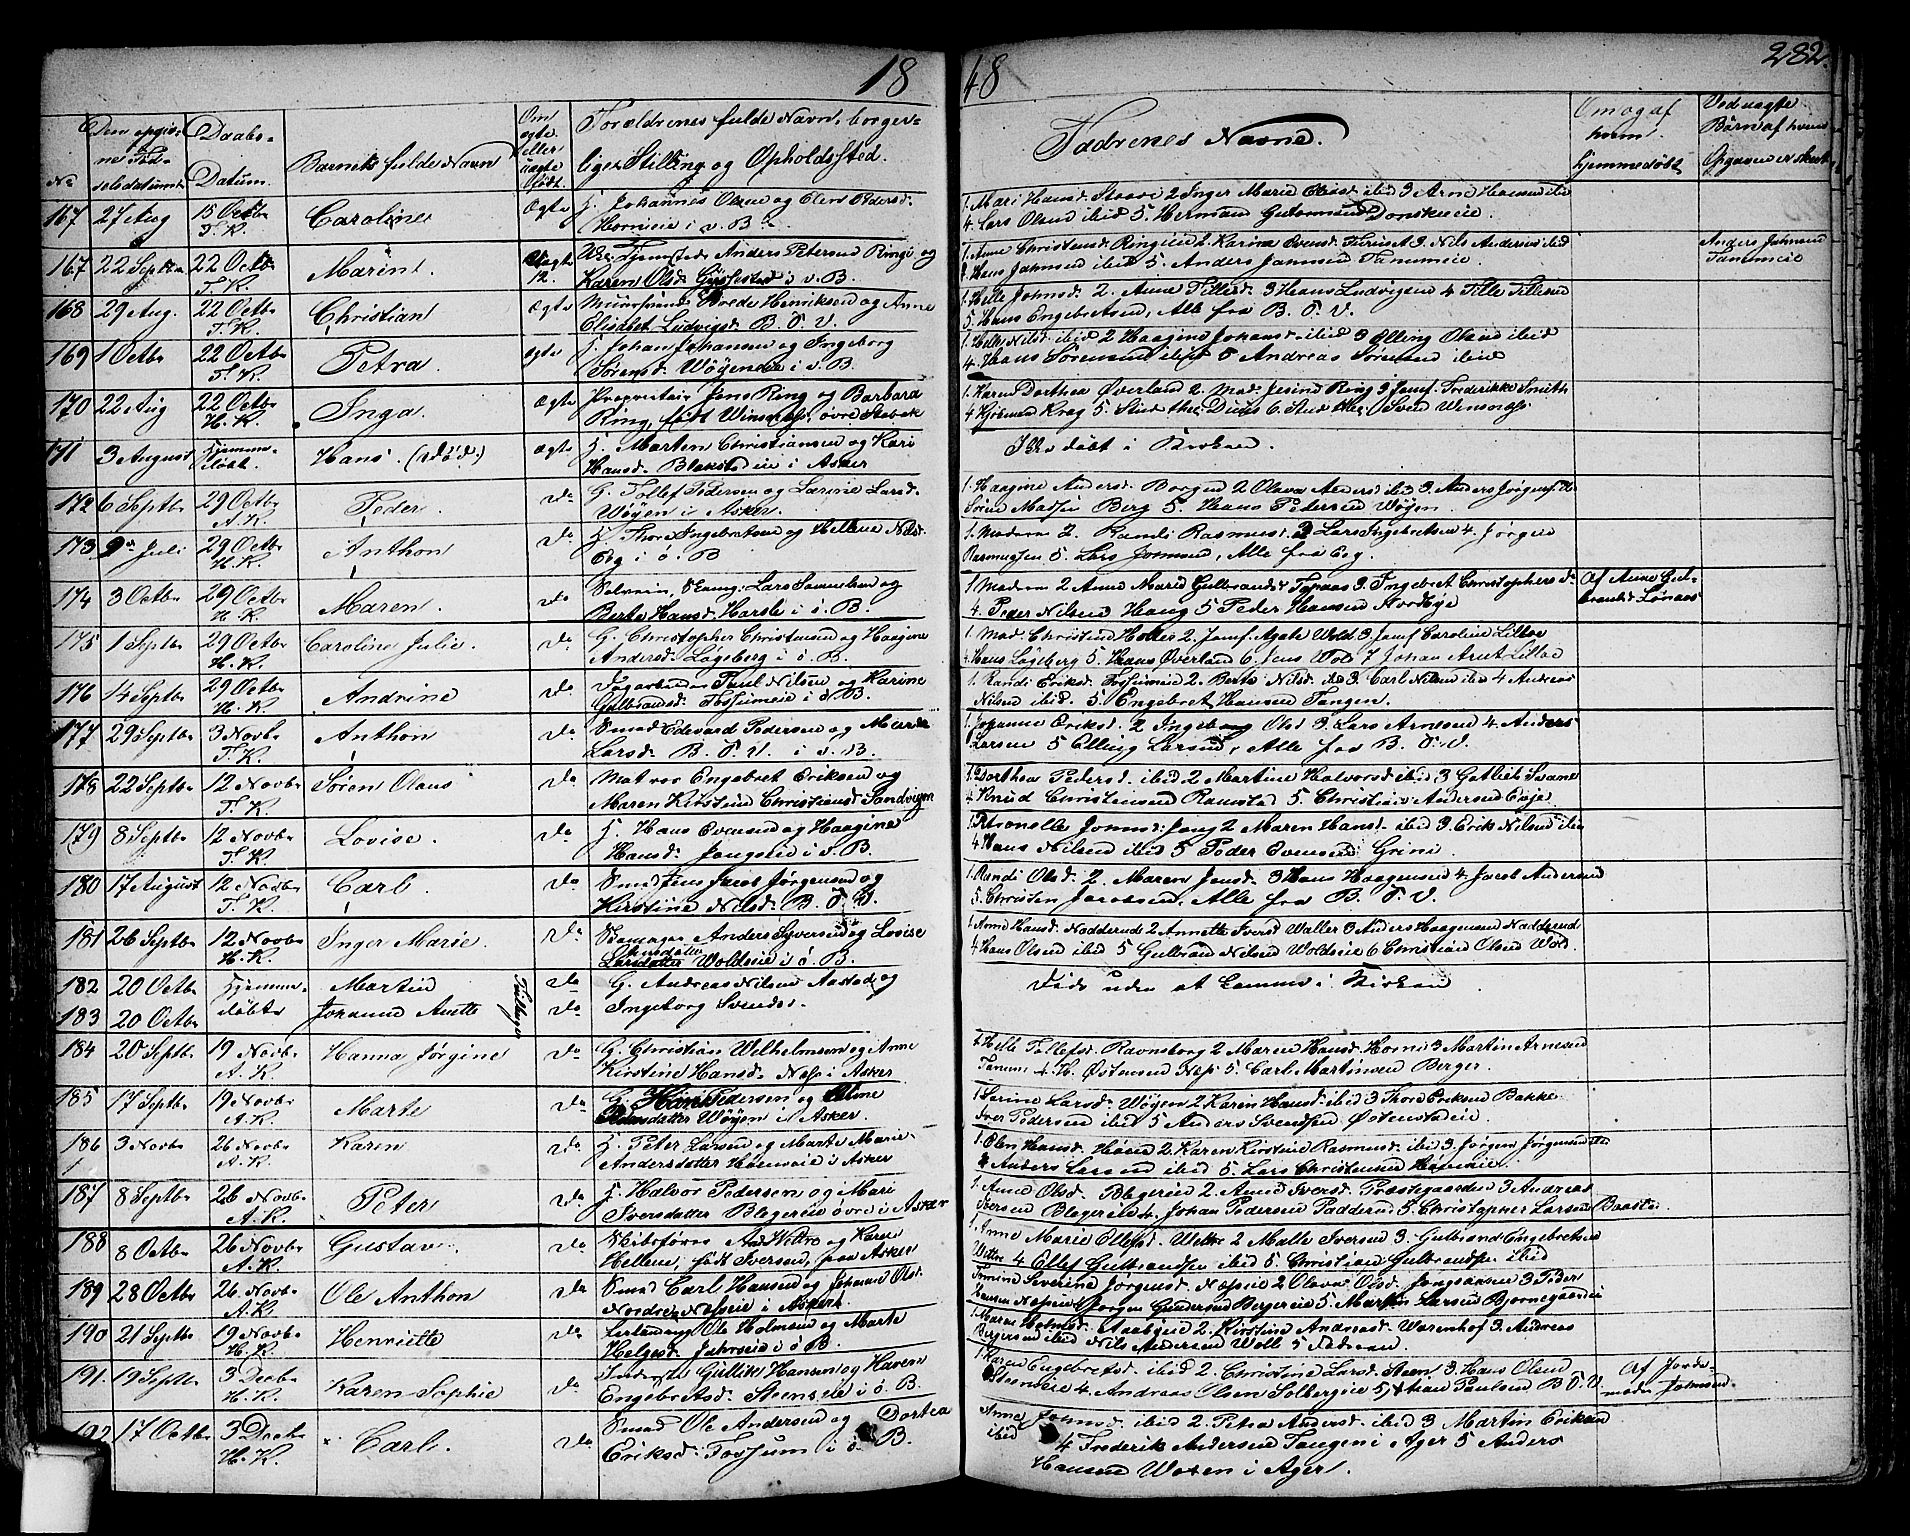 18 48 282.
No
Den opgivne Fødselsdatum
Daabs-Datum.
Barnets fulde Navn
Om ægte eller uægte født.
Forældrenes fulde Navn, borgerlige Stilling og Opholdssted.
Faddrenes Navne.
Om og af hvem hjemmedøbt
Ved uægte Børn af hvem Opgaven er skeet
167 27 Aug 15 Octbr T. K. Caroline Ægte
H. Johannes Olsen og Eleni Pedersd.
Horneie i v. B.
1. Mari Hansd. 2 Inger Marie Olsd. ibid 3 Arne Hansen ibid
4. Lars Olsen ibid 5. Herman Gutormsen Donskieie.
167 22 Septbr 22 Octbr T. K. Marin Uægte 12.
Anders Petersen Ringi og
Karen Olsd. i v. B.
1. Anne Christensd. Ringieie 2. Karine Evensd. 3. Nils Andersen ibid
4. Hans Johnsen ibid 5. Anders Johnsen Tanumeie
Anders Johnsen
Tanumeie
168 29 Aug. 22 Octbr T. K. Christian Ægte
Muurmand Brede Henriksen og Anne
Elisabet Ludvigsd. B. O. V.
1. Helle Johnsd. 2. Anne Tillesd. 3 Hans Ludvigsen 4 Tille Tillesen
5. Hans Engebretsen, Alle fra B. O. V.
169 1 Octbr 22 Octbr T. K. Petra ægte
H. Johan Johansen og Ingeborg
Sørensd. Wøyeneie i v. B.
1. Helle Nilsd. ibid 2 Haagine Johansd. ibid 3 Elling Olsen ibid
4. Hans Sørensen ibid 5 Andreas Sørensen ibid
170 22 Aug 22 Octbr H. K. Inga. Ægte
Proprietair Jens Ring og Barbara
Ring, født Winsnæs, øvre Stabek
1. Karen Dorthea Øverland 2. Mad. Jesine Ring 3 Jomf. Frederikke Smith
4 Krag 5. Stud. theol. 6. Stud. Svend Winsnæs
171 3 August Hjemmedøbt. Hans. (død.) Ægte
H. Morten Christiansen og Kari
Hansd. Blakstadeie i Asker
Ikke døbt i Kirken.
172 6 Septbr 29 Octbr A. K. Peder. do
G. Tollef Pedersen og Larine Larsd.
Wøyen i Asker.
1. Haagine Andersd. Borgen 2 Olava Andersd. ibid 3. Anders Jørgensen
Søren Madsen Berg 5. Hans Pedersen Wøyen.
173 9de Juli 29 Octbr H. K. Anthon do
H. Thore Ingebretsen og Hellene Nilsd.
Eeg i ø. B
1. Moderen 2. Randi Rasmusd. 3 Lars Ingebretsen 4. Jørgen
Rasmussen 5. Lars Jonsen, Alle fra Eeg.
174 3 Octbr 29 Octbr H. K. Maren. do
Selveier, Lars Samuelsen og
Berte Hansd. Harsle i ø. B.
1 Moderen 2 Anne Marie Gulbrandsd. 3. Ingebret Christophersen do
4. Peder Nilsen Haug 5 Peder Hansen Nordbye
Af Anne Gulbrandsd.
175 1 Septbr 29 Octbr H. K. Caroline Julie. do
G. Christopher Christensen og Haagine
Andersd. Løgeberg i ø. B.
1. Mad. Christine Holter 2. Jomf. Agate Wold 3. Jomf Caroline Liltoe
4. Hans Løgeberg 5. Hans Øverland 6. Jens Wold 7 Johan Arnt Liltoe
176 14 Septbr 29 Octbr H. K. Andrine do
Dagarbeider Poul Nilsen og Karine
Gulbrandsd. Fossumeie i ø. B.
1. Randi Eriksd. Fossumeie 2. Berte Nilsd. ibid 3. Carl Nilsen ibid 4 Andreas
Nilsen ibid. 5. Engebret Hansen Tangen.
177 29 Septbr 3 Novbr T. K. Anthon do
Smed Edevard Pedersen og Marte
Larsd. B. O. V. i v. B.
1. Johanne Eriksd. 2 Ingeborg Olsd. 3. Lars Arnesen 4. Anders
Larsen 5 Elling Larsen, Alle fra B. O. V.
178 22 Septbr 12 Novbr T. K. Søren Olaus do
Matros Engebret Eriksen og
Maren Kirstine Christiansd. Sandvigen
1. Dorthea Pedersd. ibid 2 Martine Halvorsd. ibid 3 Gotlieb Svane
4 Knud Christensen Ramstad 5. Christian Andersen Evje.
179 8 Septbr 12 Novbr T. K. Lovise. do
H. Hans Evensen og Haagine
Hansd. Jongseie i v. B.
1. Petronelle Jonsd. Jong 2. Maren Hansd. ibid 3. Erik Nilsen ibid
4. Hans Nilsen ibid 5 Peder Evensen Grini
180 17 August 12 Novbr T. K. Carl. do
Smed Jens Jacob Jørgensen og
Kirstine Nilsd. B. O. V.
1. Randi Olsd. 2. Maren Jensd. 3 Hans Haagensen 4. Jacob Andersen
5. Christen Jacobsen. Alle fra B. O. V.
181 26 Septbr 12 Novbr H. K. Inger Marie. do
Anders Syversen og Lovise
Larsdatter Woldseie i ø. B.
1. Anne Hansd. Nadderud 2. Annette Iversd. Waller 3 Anders Haagensen Nadderud
4 Hans Olsen ibid 5 Gulbran Nilsen Woldseie 6 Christian Olsen Wold.
182 20 Octbr Hjemmedøbte Martin do
183 20 Octbr Johanne Anette do
Tvillinger
G. Andreas Nilsen Aastad og
Ingeborg Svendsd.
Døde uden at komme i Kirken
184 20 Septbr 19 Novbr A. K. Hanna Jørgine do
G. Christian Wilhelmsen og Anne
Kirstine Hansd. Næs i Asker
1. Helle Tollefsd. Ravnsborg 2. Maren Hansd. 3 Martin Arnesen
Tanum 4. H. Østensen Næs 5. Carl Martinsen Berger.
185 17 Septbr 19 Novbr A. K. Marte do
G. Hans Pedersen og Anne
Wøyen i Asker.
1 Larine Larsd. Wøyen 2 Karen Hansd. ibid 3 Thore Eriksen Bakke
Iver Pedersen ibid 5 Anders Svendsen Østenstadeie
186 3 Novbr 26 Novbr A. K. Karen do
H. Peter Larsen og Marte Marie
Andersdatter i Asker
1. Olea Hansd. 2 Karen Kirstine Rasmusd. ibid 3. Jørgen Jørgensen ibid
4 Anders Larsen ibid 5. Lars Christensen
187 8 Septbr 26 Novbr A. K. Peter do
H. Halvor Pedersen og Mari
Iversdatter Blegereie øvre i Asker
1. Anne Olsd. Blegereie 2. Anne Iversd. Præstegaarden 3 Andreas
Iversen Blegereie 4. Johan Pedersen Padderud 5. Christopher Larsen Baastø.
188 8 Octbr 26 Novbr A. K. Gustav do
Kirkesanger And. Wettre og Karen
Hellene, født Iversen, paa Asker
1. Anne Marie Ellefsd. Wettre 2 Malle Iversen 3. Gulbrand Engebretsen
Wettre 4 Ellef Gulbrandsen ibid 5. Christian Gulbrandsen ibid
189 28 Octbr 26 Novbr A. K. Ole Anthon do
Smed Carl Hansen og Johanne Olsd.
Nordre Næseie i Asker
Severine Jørgensd. Næseie 2 Olava Olsd. Jongsaasen 3 Peder
Hansen Næseie 4 Jørgen Gundersen Bergereie 5. Martin Larsen Bjørnegaardeie
190 21 Septbr 19 Novbr H. K. Henriette do
Ole Holmsen og Marte
Helgesd. Jahrseie i ø B.
1. Maren Holmsd. 2. Kirstine Andreasd. 3. Andreas
Bergersen ibid 4 Nils Andersen Wolle 5 Faderen
191. 19 Septbr 3 Decbr H. K. Karen Sophie do
Inderst Gullik Hansen og Maren
Engebretsd. Steenseie i ø. B.
1. Karen Engebretsd. ibid 2. Christine Larsd. Steen 3 Hans Olsen
Steenseie 4. Andreas Olsen Solbergeie 5 Poulsen B. O. V.
Af Jordemoder Johnsen
192 17 Octbr 3 Decbr H. K. Carl. do
Smed Ole Andersen og Dortea
Eriksd. Fossum i ø. B.
Anne Johnsd. ibid 2. Petra Andersd. ibid 3 Martin Eriksen
ibid 4 Frederik Andersen Tangen i Ager 5 Anders
Hansen Woxen i Ager.